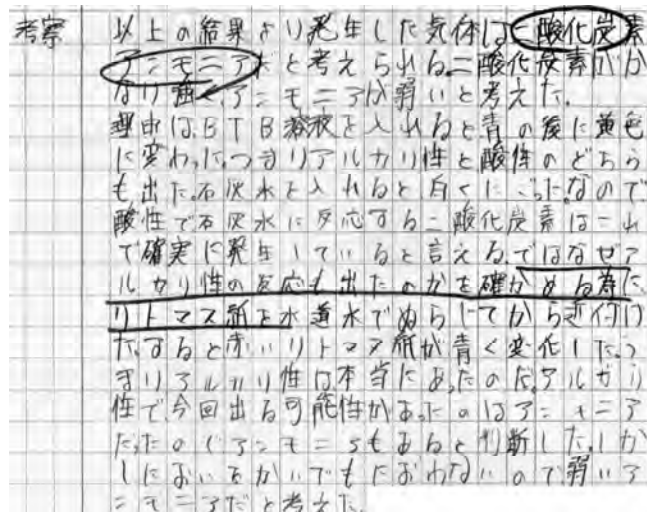 考察 以上の結果より発生した気体は二酸化炭素
アンモニアだと考えられる。二酸化炭素がか
なり強く、アンモニアが弱いと考えた。
理由は、BTB溶液を入れると青の後に黄色
に変わった。つまりアルカリ性と酸性のどちら
も出た。石灰水を入れると、白くにごった。なので
酸性で石灰水に反応する二酸化炭素はこれ
で確実に発生していると言える。ではなぜア
ルカリ性の反応も出たのかを確かめる為に
リトマス紙を水道水でぬらしてから近付け
た。すると赤いリトマス紙が青く変化した。つ
まりアルカリ性は本当にあったのだ。アルカリ
性で、今回出る可能性があったのはアンモニア
だったのでアンモニアもあると判断した。しか
しにおいをかいでもにおわないので弱いア
ンモニアだと考えた。